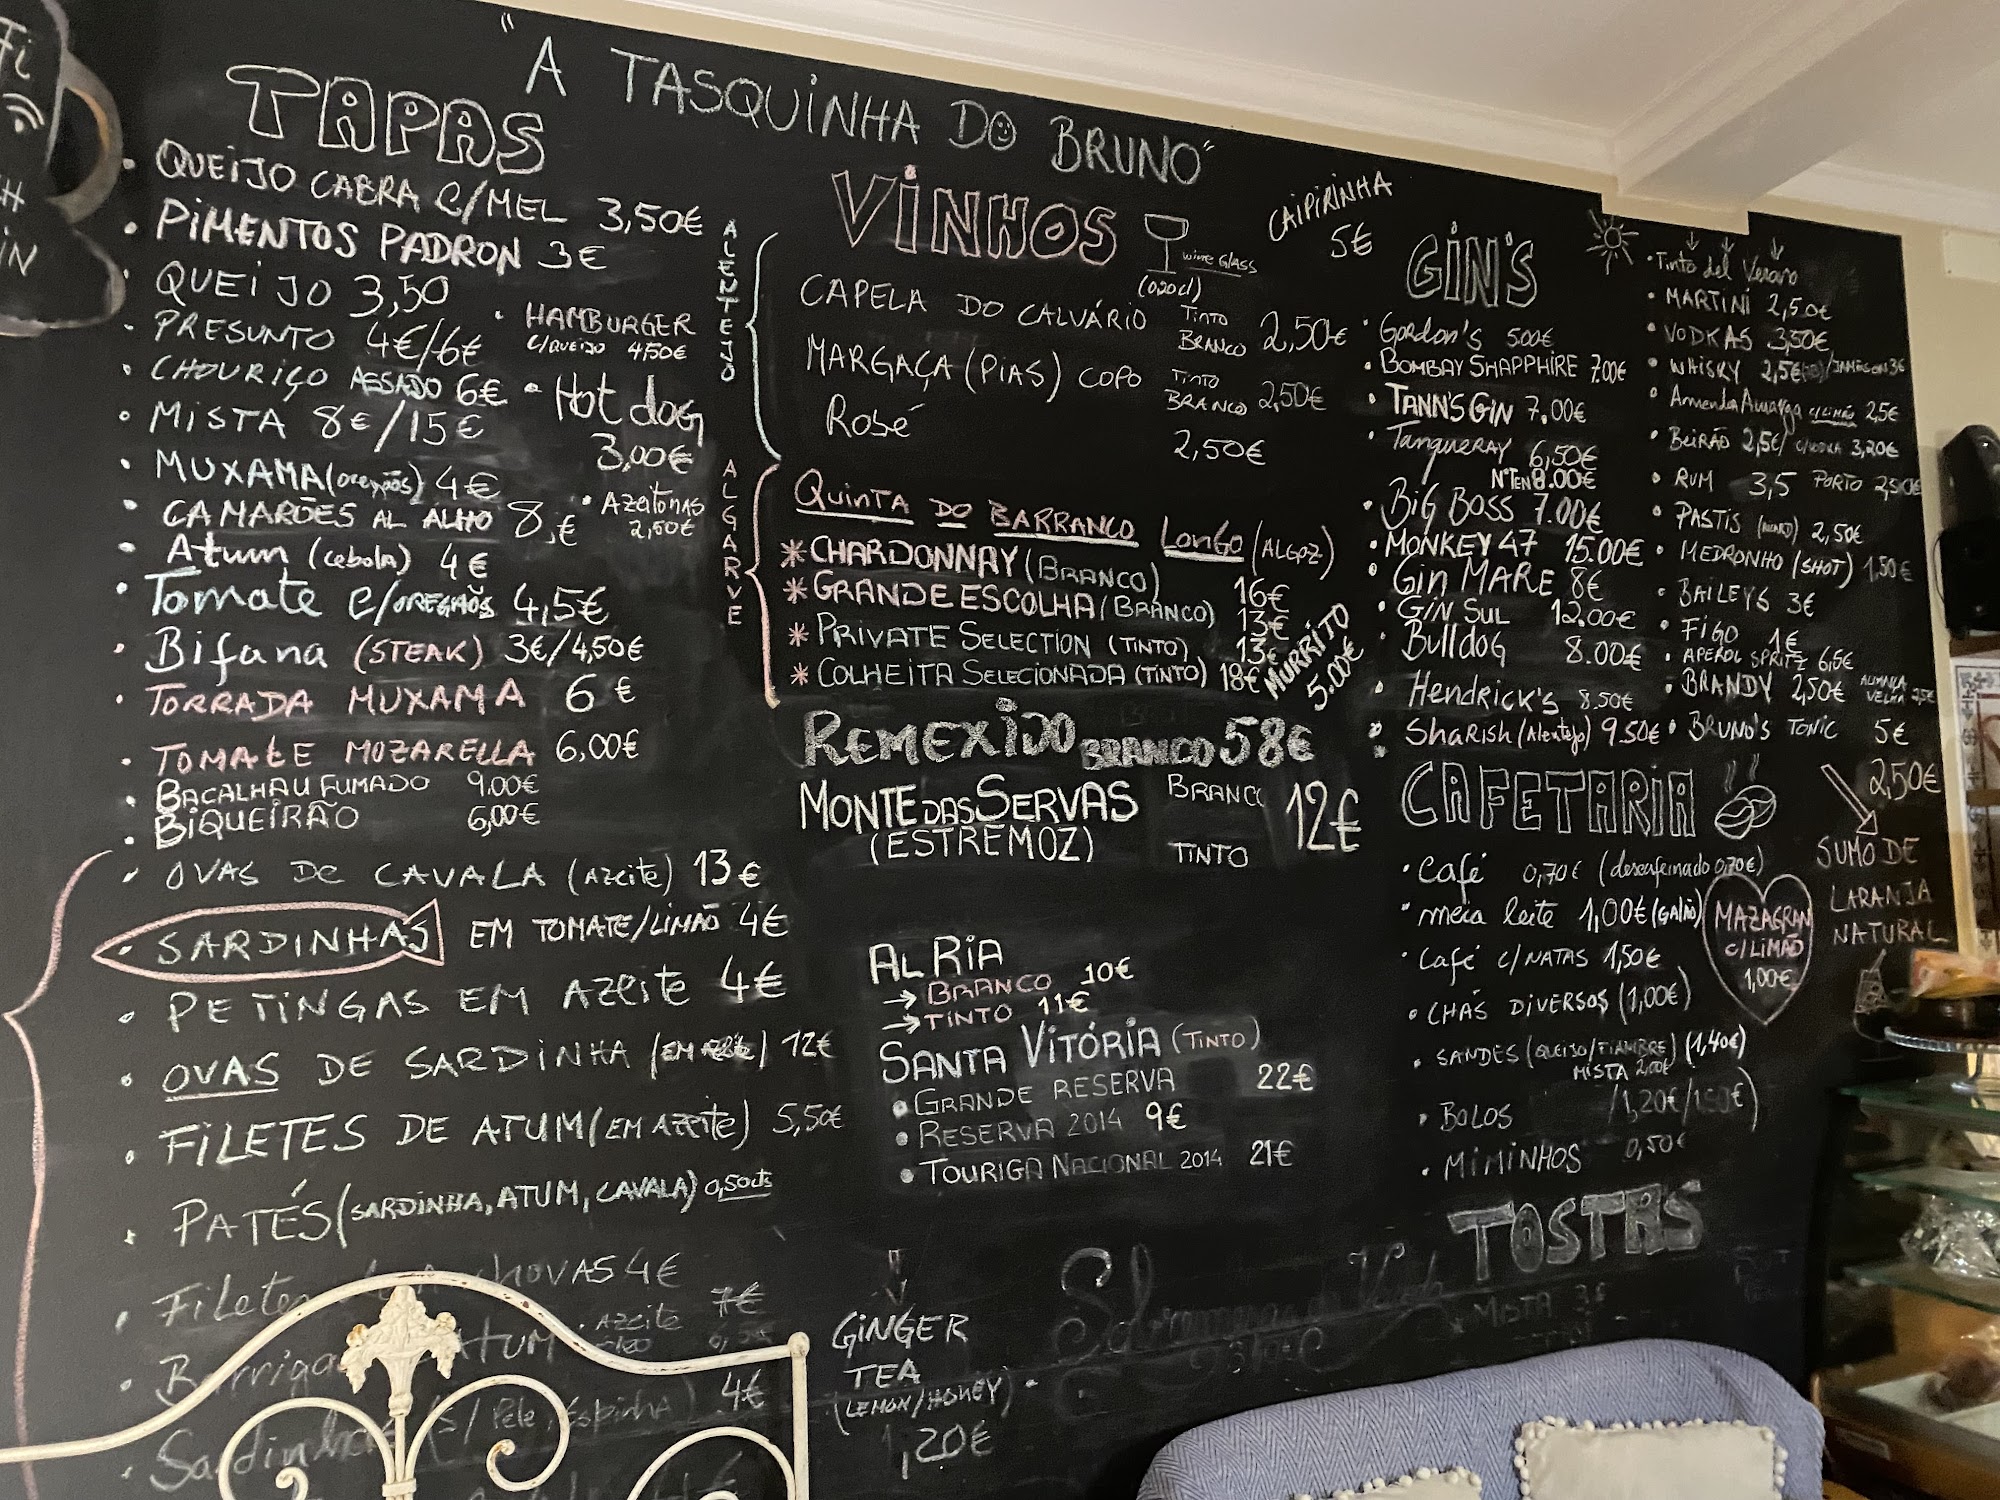 Fi
H
iN
"A TASQUiNHA DO BRUNO"
TAPAS
• QUEiJO CABRA C/MEL 3,50€
• PiMENTOS PADRON 3€
QUEiJO 3,50
• PRESUNTO 4€/6€
• CHOURiÇO ASSADO 6€
• MiSTA 8€/15€
• MUXAMA (oregãos) 4€
• CAMARÕES AL ALHO 8,€
• Atum (cebola) 4€
• Tomate C/OREGÃOS 4,5€
• Bifana (STEAK) 3€/4,50€
• TORRADA MUXAMA 6 €
• TOMATE MOZARELLA 6,00€
• BACALHAU FUMADO 9,00€
• BiQUEiRÃO 6,00€
• HAMBURGER
C/QUEiJO 4,50€
• Hot dog
3,00€
• Azeitonas
2,50€
• OVAS De CAVALA (Azeite) 13€
• SARDINHAS EM TOMATE/LIMÃO 4€
• PETINGAS EM AZeite 4€
• OVAS DE SARDINHA (EM Azeite) 12€
• FiLETES DE ATUM (EM AZeite) 5,50€
• PATÉS (SARDINHA, ATUM, CAVALA) 0,50cts
• Filetes Anchovas 4€
• Barriga ATUM • Azeite 7€
• Sardinhas (s/ Pele, Espinha) 4€
ALENTEJO
ViNHOS
wine GlAss
(0,20cl)
CAPELA DO CALVÁRIO TiNTO BRANCO 2,50€
MARGAÇA (PiAS) COPO TiNTO BRANCO 2,50€
Rosé 2,50€
ALGARVE
QUiNTA DO BARRANCO LONGO (ALGOZ)
* CHARDONNAY (BRANCO) 16€
* GRANDE ESCOLHA (BRANCO) 13€
* PRIVATE SELECTION (TINTO) 13€
* COLHEITA SELECIONADA (TINTO) 18€
REMEXiDO BRANCO 58€
MONTE DAS SERVAS BRANCO 12€
(ESTREMOZ) TiNTO
AL RiA
→ BRANCO 10€
→ TiNTO 11€
SANTA ViTÓRiA (TiNTO)
• GRANDE RESERVA 22€
• RESERVA 2014 9€
• TOURIGA NACIONAL 2014 21€
GiNGER
TEA
(LEMON/HONEY)
1,20€
CAIPIRINHA
5€
MURRiTO
5.00€
GiN'S
• Gordon's 5.00€
• BOMBAY SHAPPHIRE 7.00€
• TANN'S GiN 7.00€
• Tanqueray 6,50€
Nº TEN 8.00€
• BiG BOSS 7.00€
• MONKEY 47 15.00€
• Gin MARE 8€
• GiN SUL 12.00€
Bulldog 8.00€
• Hendrick's 8.50€
• Sharish (Alentejo) 9.50€
• Tinto del Verano
• MARTiNi 2,50€
• VODKAS 3,50€
• WHiSKY 2,5€ /JAMESON 3€
• Amendoa Amarga c/Limão 2,5€
• BEiRÃO 2,5€/ C/VODKA 3,20€
• RUM 3,5 PORTO 2,50€
• PASTiS 2,50€
• MEDRONHO (SHOT) 1,50€
• BAiLEYS 3€
• FiGO 1€
• APEROL SPRiTZ 6,5€
• BRANDY 2,50€ VELHA 2,5€
• BRUNO'S TONIC 5€
2,50€
SUMO DE
LARANJA
NATURAL
CAFETARiA
• Café 0,70€ (descafeinado 0,70€)
• meia leite 1,00€ (GAlÃO)
• Café C/NATAS 1,50€
• CHÁS DIVERSOS (1,00€)
• SANDES (QUEiJO/FiAMBRE) (1,40€)
MiSTA 2,00€
• BOLOS /1,20€/1,50€)
• MiMiNHOS 0,50€
MAZAGRAN
C/LIMÃO
1,00€
TOSTAS
MiSTA 3€